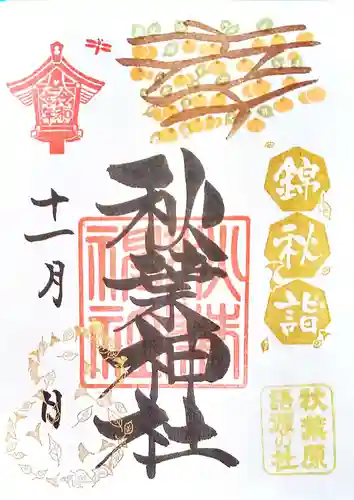 錦秋詣
秋葉原
語源の社
秋葉神社
十一月
日